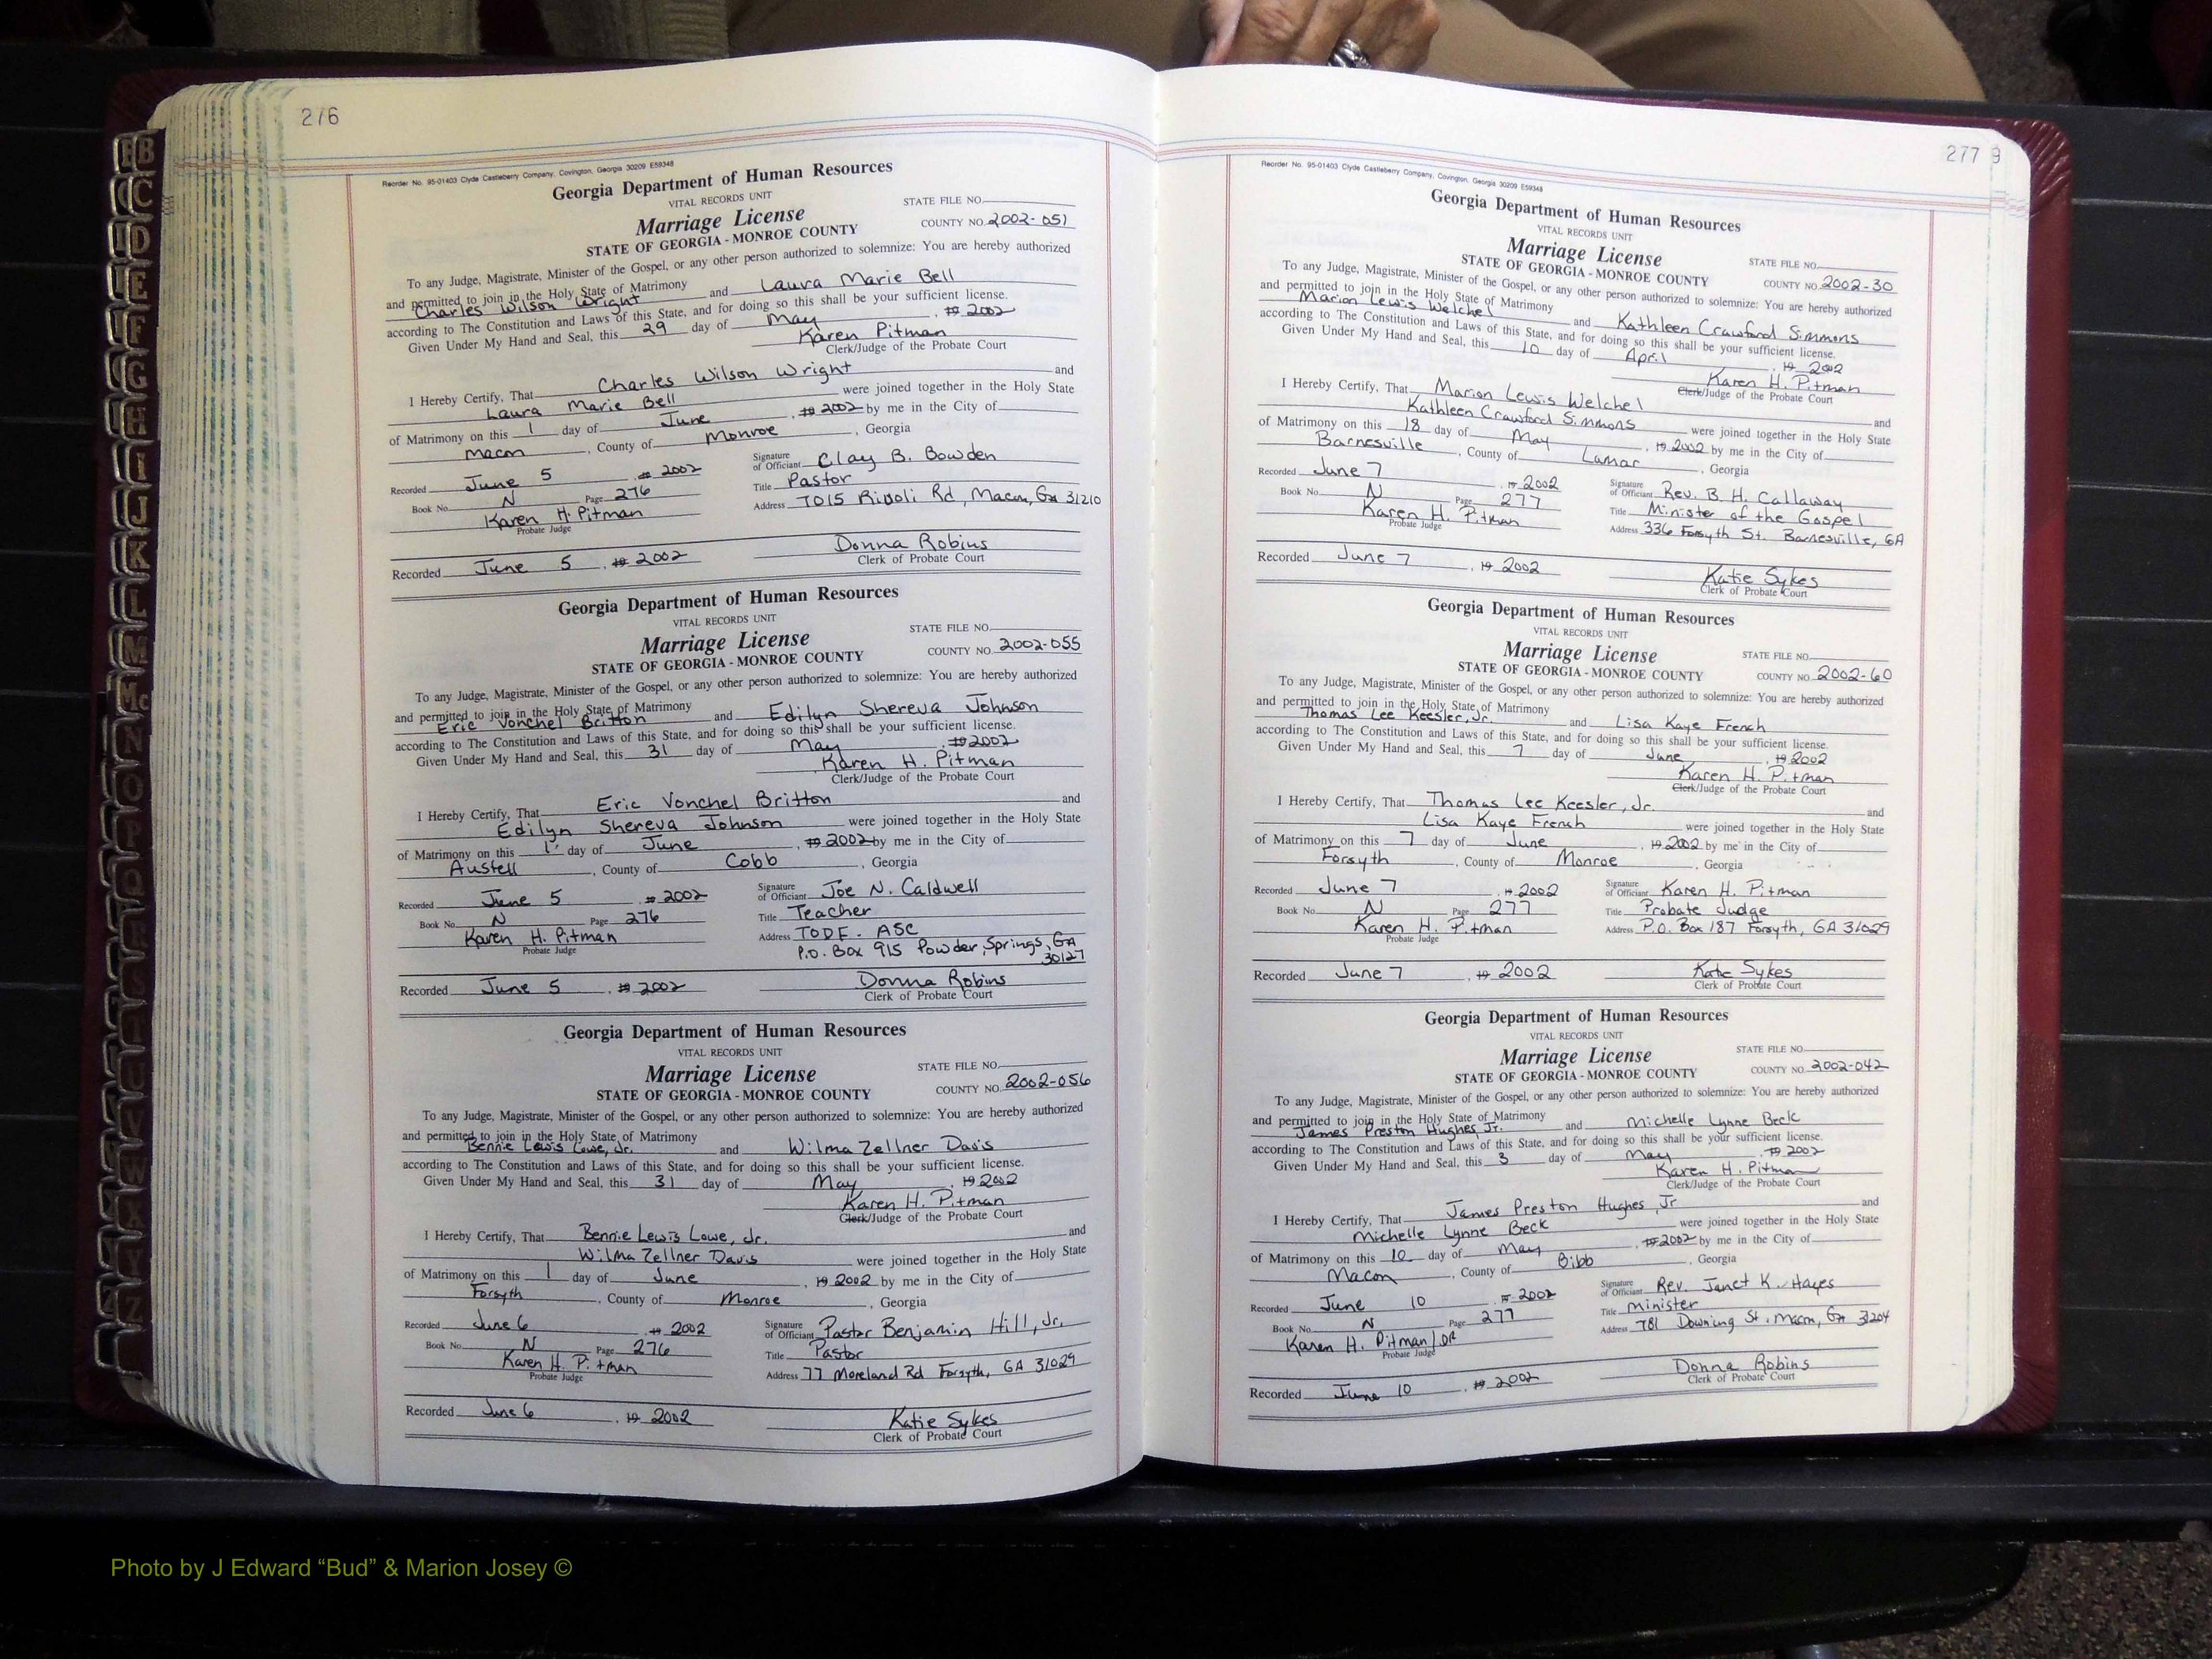 276
Reorder No. 95-01403 Clyde Castleberry Company, Covington, Georgia 30209 E59348
Georgia Department of Human Resources
VITAL RECORDS UNIT
STATE FILE NO.
Marriage License
COUNTY NO. 2002-051
STATE OF GEORGIA - MONROE COUNTY
To any Judge, Magistrate, Minister of the Gospel, or any other person authorized to solemnize: You are hereby authorized
and permitted to join in the Holy State of Matrimony
Charles Wilson Wright and Laura Marie Bell
according to The Constitution and Laws of this State, and for doing so this shall be your sufficient license.
Given Under My Hand and Seal, this 29 day of May, 19 2002
Karen Pitman
Clerk/Judge of the Probate Court
I Hereby Certify, That Charles Wilson Wright and
Laura Marie Bell were joined together in the Holy State
of Matrimony on this 1 day of June, 19 2002 by me in the City of
Macon, County of Monroe, Georgia
Recorded June 5, 19 2002
Signature of Officiant Clay B. Bowden
Book No. N Page 276
Title Pastor
Karen H. Pitman
Probate Judge
Address 7015 Rivoli Rd, Macon, Ga 31210
Donna Robins
Recorded June 5, 19 2002
Clerk of Probate Court
Georgia Department of Human Resources
VITAL RECORDS UNIT
STATE FILE NO.
Marriage License
COUNTY NO. 2002-055
STATE OF GEORGIA - MONROE COUNTY
To any Judge, Magistrate, Minister of the Gospel, or any other person authorized to solemnize: You are hereby authorized
and permitted to join in the Holy State of Matrimony
Eric Vonchel Britton and Edilyn Shereva Johnson
according to The Constitution and Laws of this State, and for doing so this shall be your sufficient license.
Given Under My Hand and Seal, this 31 day of May, 19 2002
Karen H. Pitman
Clerk/Judge of the Probate Court
I Hereby Certify, That Eric Vonchel Britton and
Edilyn Shereva Johnson were joined together in the Holy State
of Matrimony on this 1 day of June, 19 2002 by me in the City of
Austell, County of Cobb, Georgia
Recorded June 5, 19 2002
Signature of Officiant Joe N. Caldwell
Book No. N Page 276
Title Teacher
Karen H. Pitman
Probate Judge
Address TODF. ASC
P.O. Box 915 Powder Springs, GA
30127
Donna Robins
Recorded June 5, 19 2002
Clerk of Probate Court
Georgia Department of Human Resources
VITAL RECORDS UNIT
STATE FILE NO.
Marriage License
COUNTY NO. 2002-056
STATE OF GEORGIA - MONROE COUNTY
To any Judge, Magistrate, Minister of the Gospel, or any other person authorized to solemnize: You are hereby authorized
and permitted to join in the Holy State of Matrimony
Bennie Lewis Lowe, Jr. and Wilma Zellner Davis
according to The Constitution and Laws of this State, and for doing so this shall be your sufficient license.
Given Under My Hand and Seal, this 31 day of May, 19 2002
Karen H. Pitman
Clerk/Judge of the Probate Court
I Hereby Certify, That Bennie Lewis Lowe, Jr. and
Wilma Zellner Davis were joined together in the Holy State
of Matrimony on this 1 day of June, 19 2002 by me in the City of
Forsyth, County of Monroe, Georgia
Recorded June 6, 19 2002
Signature of Officiant Pastor Benjamin Hill, Jr.
Book No. N Page 276
Title Pastor
Karen H. Pitman
Probate Judge
Address 77 Moreland Rd Forsyth, GA 31029
Recorded June 6, 19 2002
Katie Sykes
Clerk of Probate Court
277 9
Reorder No. 95-01403 Clyde Castleberry Company, Covington, Georgia 30209 E59348
Georgia Department of Human Resources
VITAL RECORDS UNIT
Marriage License
STATE FILE NO.
STATE OF GEORGIA - MONROE COUNTY
COUNTY NO. 2002-30
To any Judge, Magistrate, Minister of the Gospel, or any other person authorized to solemnize: You are hereby authorized
and permitted to join in the Holy State of Matrimony
Marion Lewis Welchel and Kathleen Crawford Simmons
according to The Constitution and Laws of this State, and for doing so this shall be your sufficient license.
Given Under My Hand and Seal, this 10 day of April, 19 2002
Karen H. Pitman
Clerk/Judge of the Probate Court
I Hereby Certify, That Marion Lewis Welchel and
Kathleen Crawford Simmons were joined together in the Holy State
of Matrimony on this 18 day of May, 19 2002 by me in the City of
Barnesville, County of Lamar, Georgia
Recorded June 7, 19 2002
Signature of Officiant Rev. B. H. Callaway
Book No. N Page 277
Title Minister of the Gospel
Karen H. Pitman
Probate Judge
Address 336 Forsyth St. Barnesville, GA
Recorded June 7, 19 2002
Katie Sykes
Clerk of Probate Court
Georgia Department of Human Resources
VITAL RECORDS UNIT
Marriage License
STATE FILE NO.
STATE OF GEORGIA - MONROE COUNTY
COUNTY NO. 2002-60
To any Judge, Magistrate, Minister of the Gospel, or any other person authorized to solemnize: You are hereby authorized
and permitted to join in the Holy State of Matrimony
Thomas Lee Keesler, Jr. and Lisa Kaye French
according to The Constitution and Laws of this State, and for doing so this shall be your sufficient license.
Given Under My Hand and Seal, this 7 day of June, 19 2002
Karen H. Pitman
Clerk/Judge of the Probate Court
I Hereby Certify, That Thomas Lee Keesler, Jr. and
Lisa Kaye French were joined together in the Holy State
of Matrimony on this 7 day of June, 19 2002 by me in the City of
Forsyth, County of Monroe, Georgia
Recorded June 7, 19 2002
Signature of Officiant Karen H. Pitman
Book No. N Page 277
Title Probate Judge
Karen H. Pitman
Probate Judge
Address P.O. Box 187 Forsyth, GA 31029
Recorded June 7, 19 2002
Katie Sykes
Clerk of Probate Court
Georgia Department of Human Resources
VITAL RECORDS UNIT
STATE FILE NO.
Marriage License
COUNTY NO. 2002-042
STATE OF GEORGIA - MONROE COUNTY
To any Judge, Magistrate, Minister of the Gospel, or any other person authorized to solemnize: You are hereby authorized
and permitted to join in the Holy State of Matrimony
James Preston Hughes Jr. and Michelle Lynne Beck
according to The Constitution and Laws of this State, and for doing so this shall be your sufficient license.
Given Under My Hand and Seal, this 3 day of May, 19 2002
Karen H. Pitman
Clerk/Judge of the Probate Court
I Hereby Certify, That James Preston Hughes, Jr and
Michelle Lynne Beck were joined together in the Holy State
of Matrimony on this 10 day of May, 19 2002 by me in the City of
Macon, County of Bibb, Georgia
Recorded June 10, 19 2002
Signature of Officiant Rev. Janet K. Hayes
Book No. N Page 277
Title Minister
Karen H. Pitman/DR
Probate Judge
Address 781 Downing St. Macon, Ga 31204
Recorded June 10, 19 2002
Donna Robins
Clerk of Probate Court
B
C
D
E
F
G
H
I
J
K
L
M
Mc
N
O
P
Q
V
W
X
Y
Z
Photo by J Edward “Bud” & Marion Josey ©